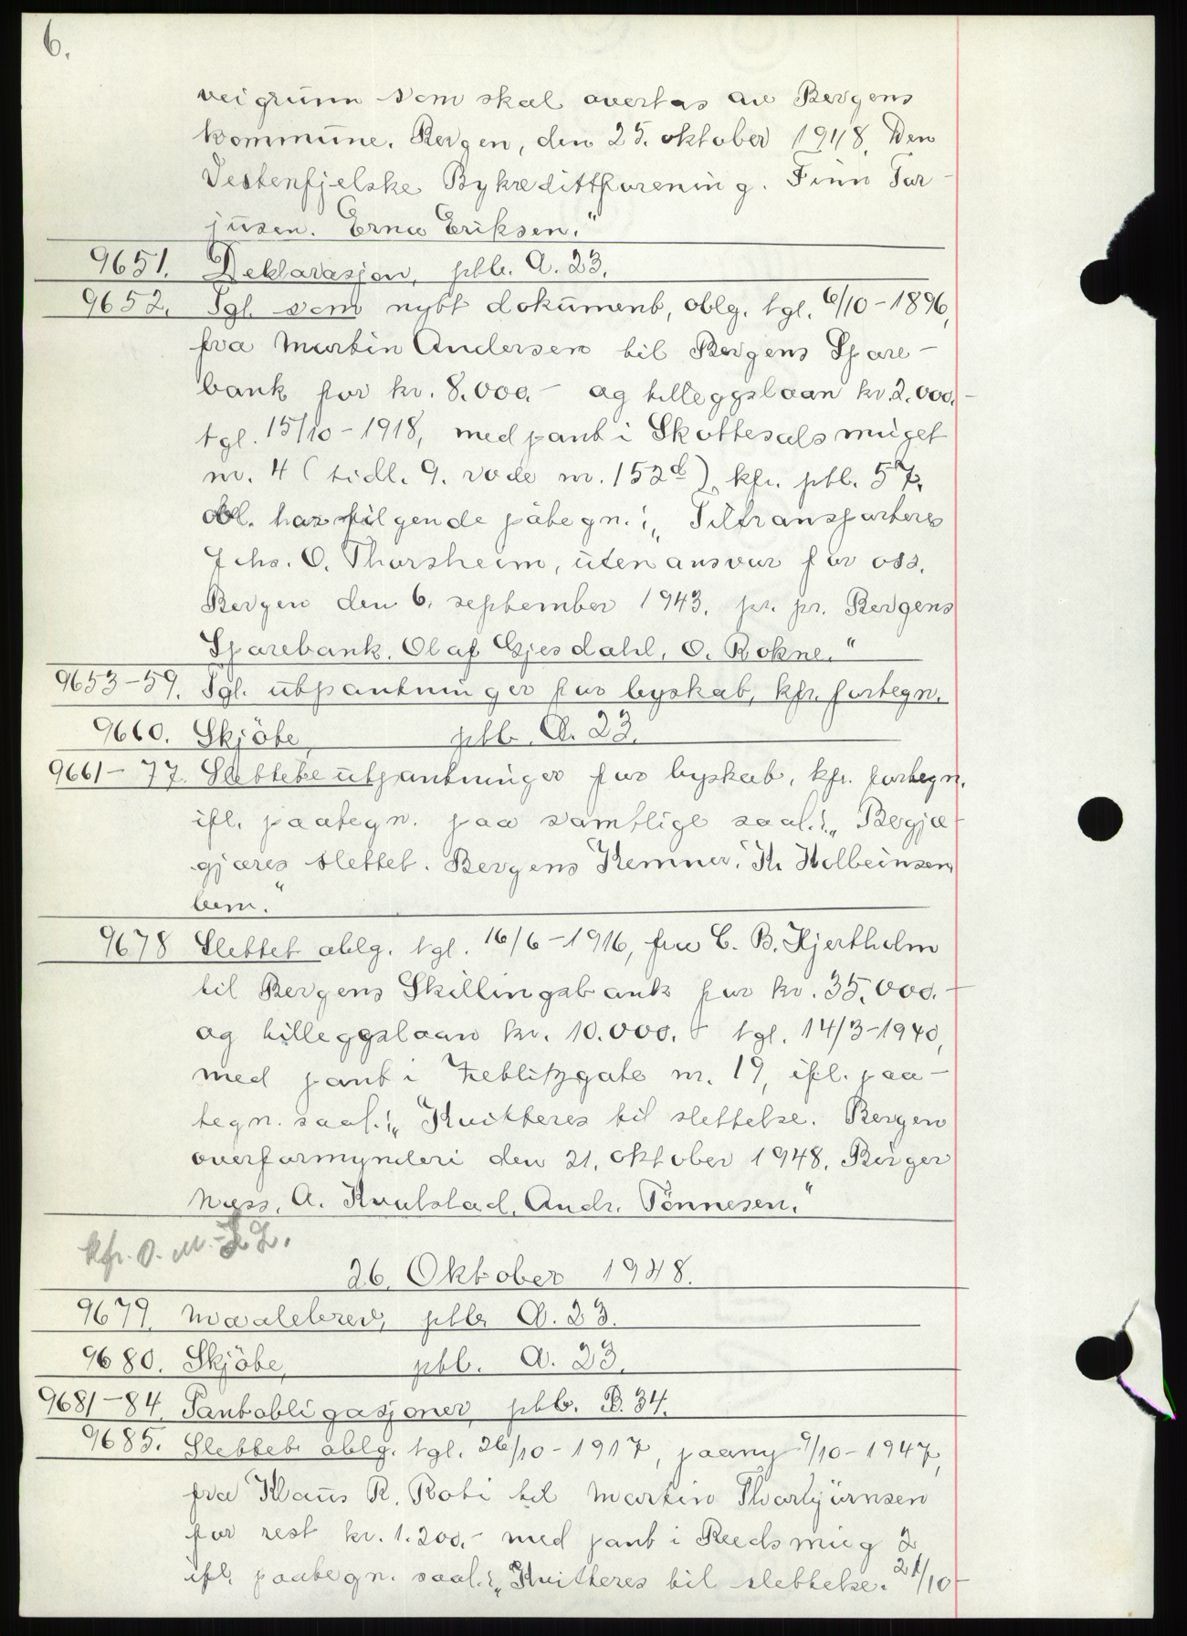 6.
veigrunn som skal overtas av Bergens
kommune. Bergen, den 25. oktober 1948. Den
Vestenfjelske Bykredittforening. Finn Tor-
jusen. Erna Eriksen."
9651. Deklarasjon, ptb. A. 23.
9652. Tgl. som nytt dokument, oblg. tgl. 6/10-1896,
fra Martin Andersen til Bergens Spare-
bank for kr. 8.000.- og tilleggslaan kr. 2.000.-
tgl. 15/10-1918, med pant i Skottesalsmuget
nr. 4 (tidl. 9. rode nr. 152d), kfr. ptb. 57.
obl. har følgende påtegn.: „Tiltransporteres
Johs. O. Thorsheim, uten ansvar for oss.
Bergen den 6. september 1943. pr. pr. Bergens
Sparebank. Olaf Gjesdahl, O. Rokne."
9653-59. Tgl. utpantninger for byskat, kfr. fortegn.
9660. Skjöte, ptb. A. 23.
9661-77. Slettete utpantninger for byskat, kfr. fortegn.
ifl. paategn. paa samtlige saal.: „Begjæ-
gjæres slettet. Bergens Kemner. Kr. Kolbeinsen
bem."
9678 Slettet oblg. tgl. 16/6-1916, fra C. B. Kjertholm
til Bergens Skillingsbank for kr. 35.000.-
og tilleggslaan kr. 10.000.- tgl. 14/3-1940,
med pant i Zeblitzgate nr. 19, ifl. paa-
tegn. saal.: „Kvitteres til slettelse. Bergen
overformynderi den 21. oktober 1948. Birger
Næss, A. Kvalstad, Andr. Tönnesen."
kfr. O. M. 22.
26. Oktober 1948.
9679. Maalebrev, ptb. A. 23.
9680. Skjöte, ptb. A. 23.
9681-84. Pantobligasjoner, ptb. B. 34.
9685. Slettet oblg. tgl. 26/10-1917, paany 9/10-1947,
fra Klaus R. Roti til Martin Thorbjörnsen
for rest kr. 1.200.- med pant i Reedsmug 2
ifl. paategn. saal.: „Kvitteres til slettelse. 21/10-